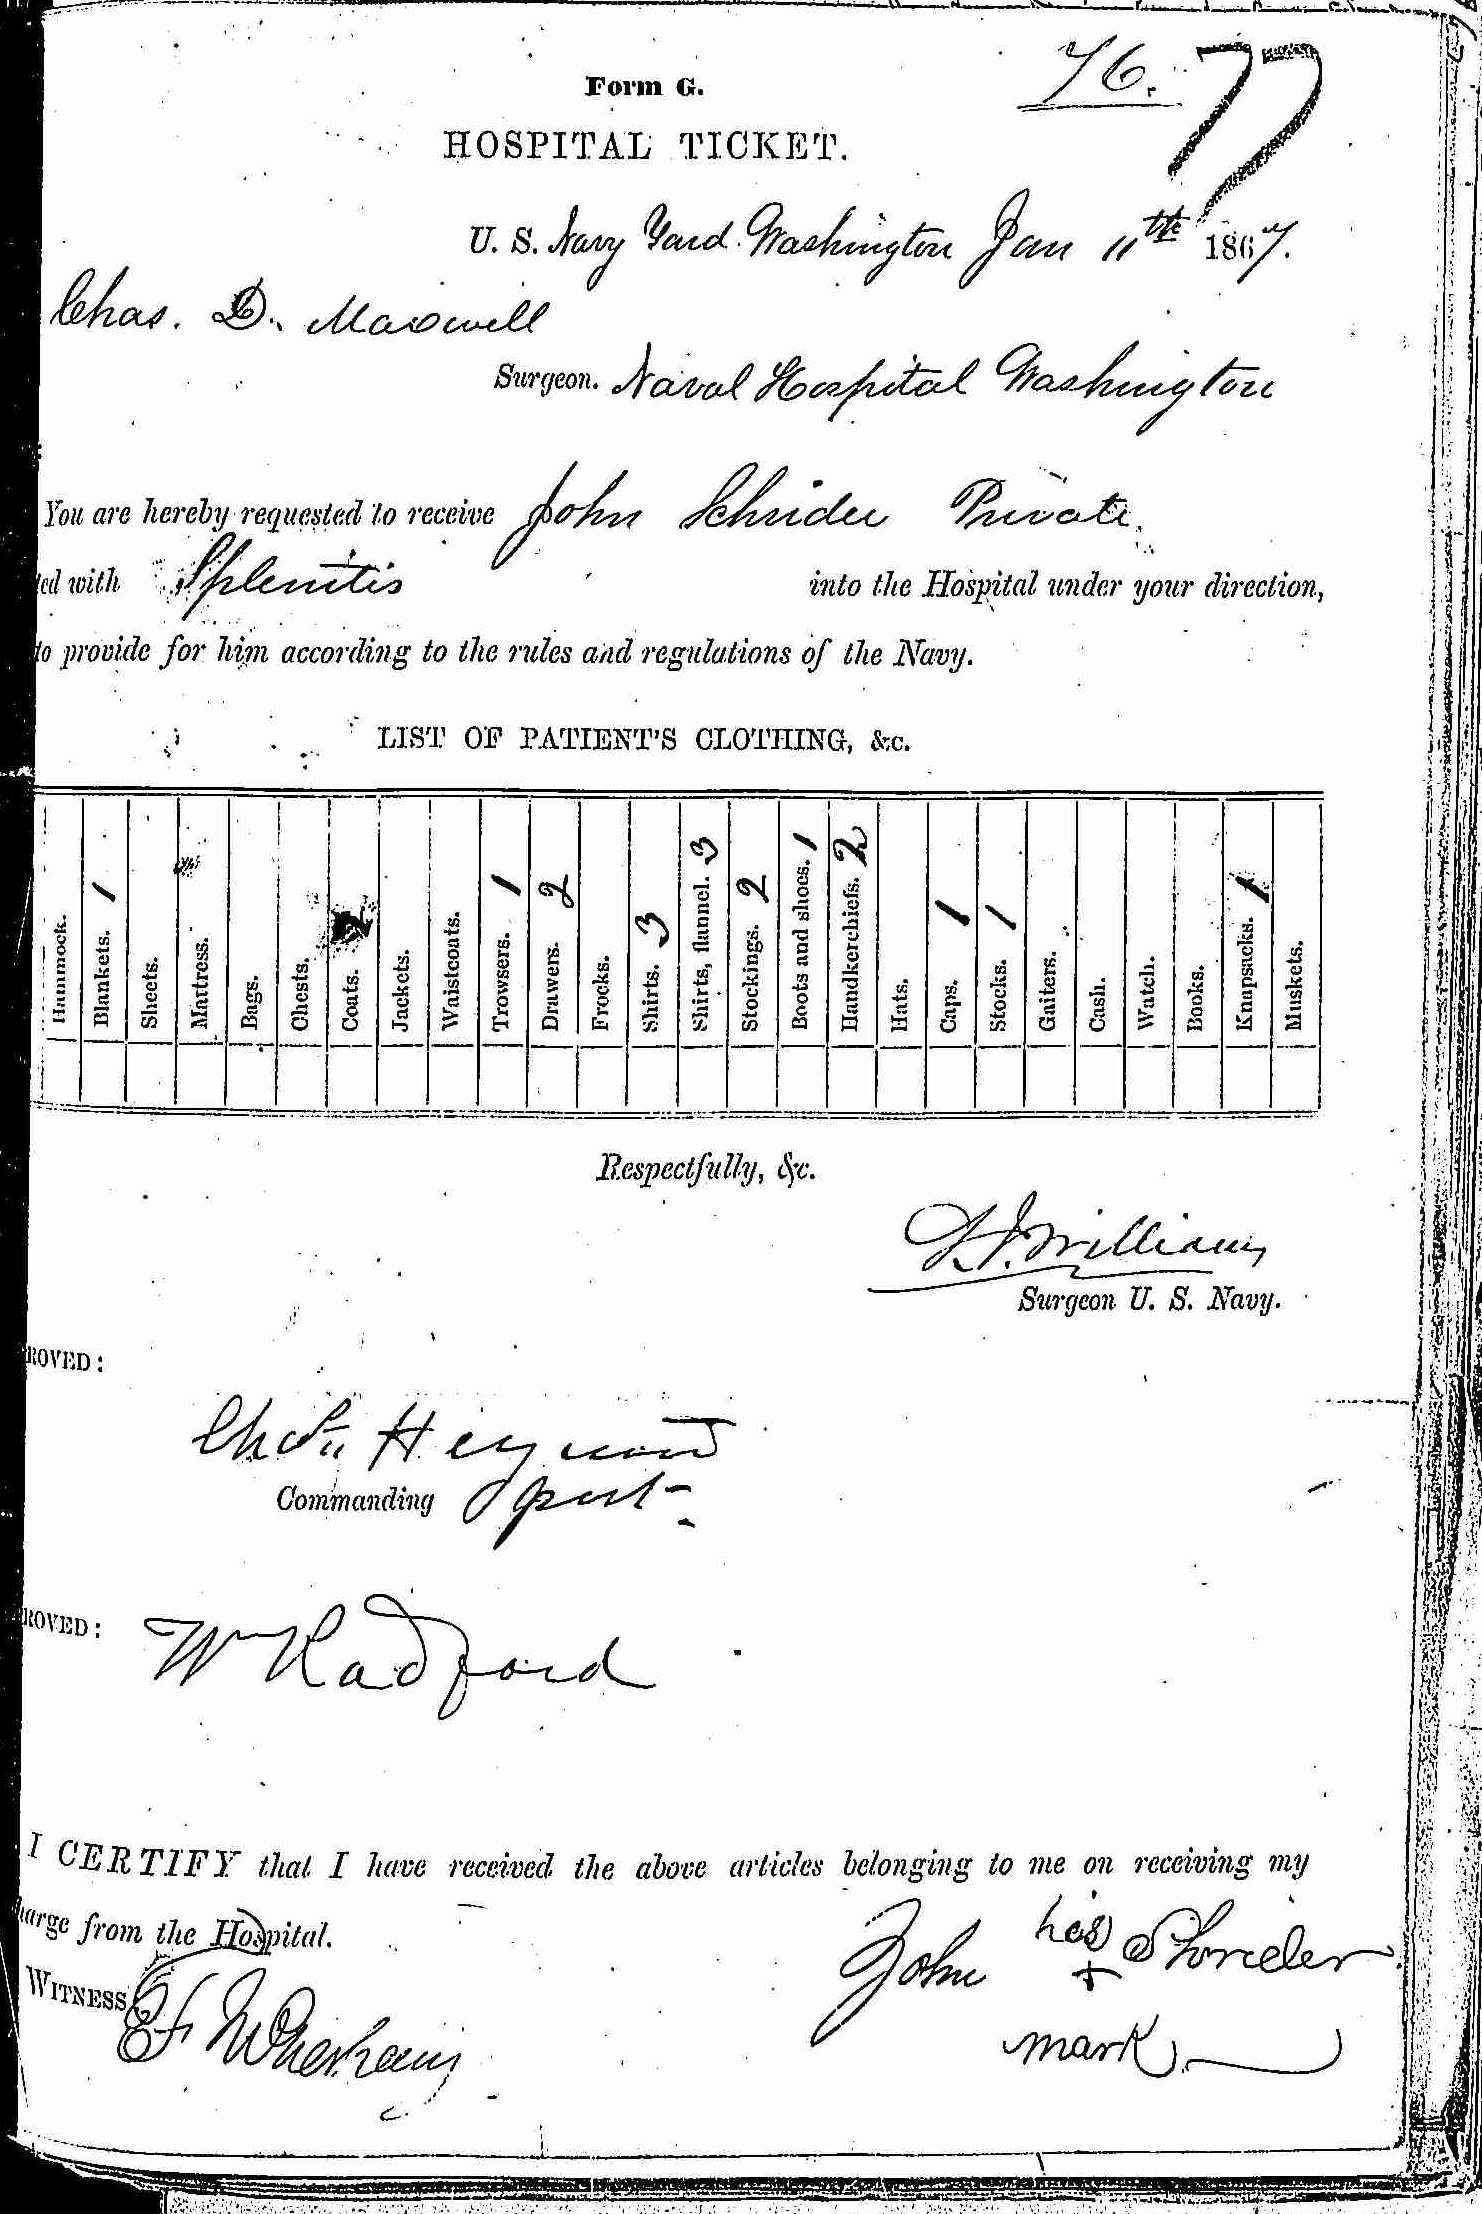 76. 77
Form G.
HOSPITAL TICKET.
U. S. Navy Yard Washington Jan 11th 1867.
Chas. D. Maxwell
Surgeon. Naval Hospital Washington
You are hereby requested to receive John Schrider Private
ted with Splenitis into the Hospital under your direction,
to provide for him according to the rules and regulations of the Navy.
LIST OF PATIENT'S CLOTHING, &c.
Hammock.
Blankets. 1
Sheets.
Mattress.
Bags.
Chests.
Coats.
Jackets.
Waistcoats.
Trowsers. 1
Drawers. 2
Frocks.
Shirts. 3
Shirts, flannel. 3
Stockings. 2
Boots and shoes. 1
Handkerchiefs. 2
Hats.
Caps. 1
Stocks. 1
Gaiters.
Cash.
Watch.
Books.
Knapsacks. 1
Muskets.
Respectfully, &c.
Williams
Surgeon U. S. Navy.
ROVED:
Heywood
Commanding post
ROVED: Wm Radford
I CERTIFY that I have received the above articles belonging to me on receiving my
harge from the Hospital.
John his + Shrider
mark
WITNESS